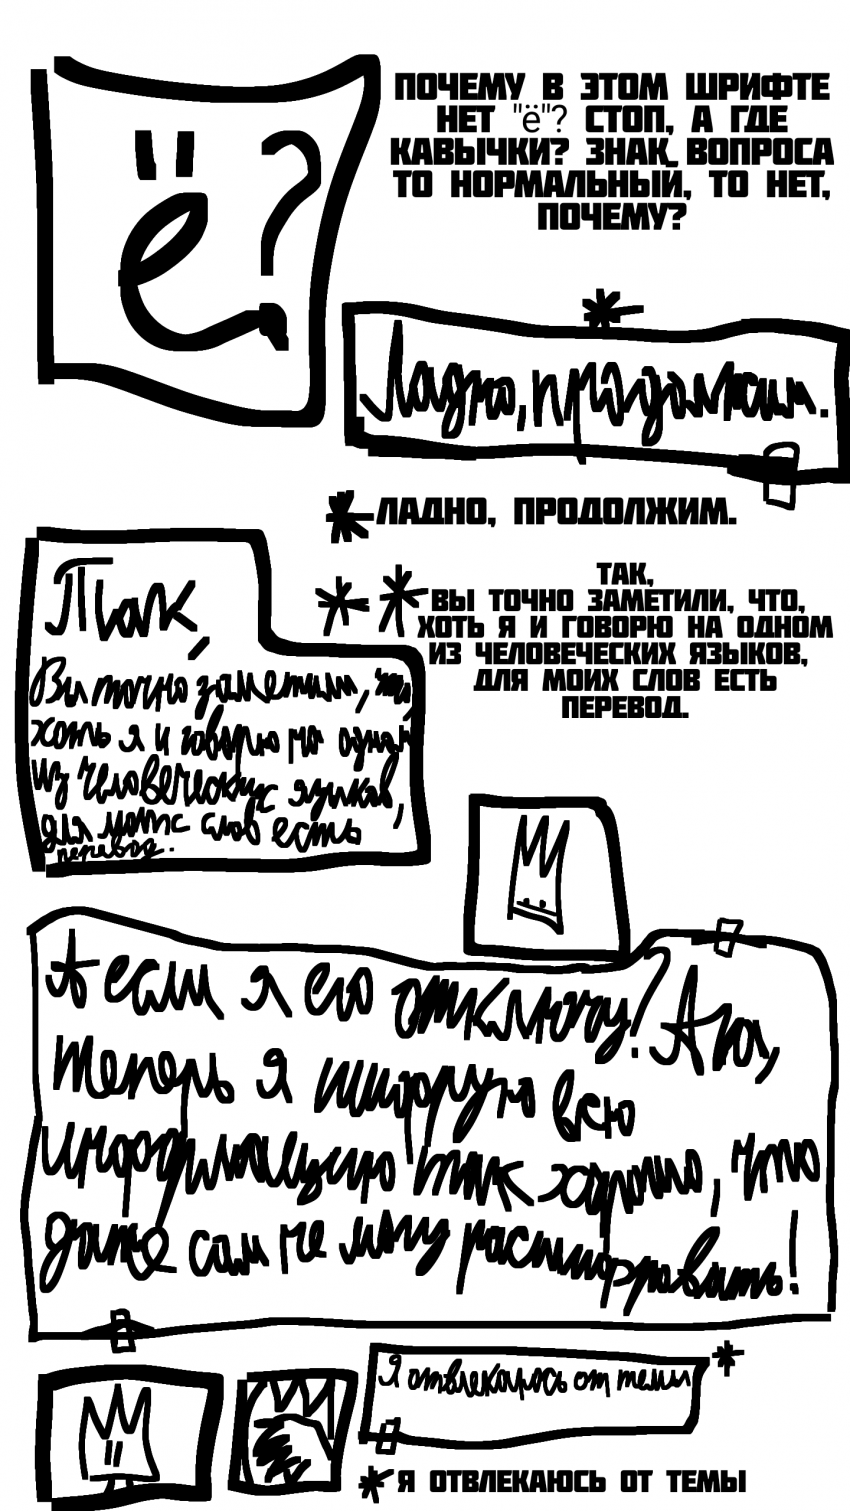 ё?
ПОЧЕМУ В ЭТОМ ШРИФТЕ
НЕТ "ё"? СТОП, А ГДЕ
КАВЫЧКИ? ЗНАК ВОПРОСА
ТО НОРМАЛЬНЫЙ, ТО НЕТ,
ПОЧЕМУ?
*
Ладно, продолжим.
*ЛАДНО, ПРОДОЛЖИМ.
Так,
Вы точно заметили, что,
хоть я и говорю на одном
из человеческих языков,
для моих слов есть
перевод.
* *
ТАК,
ВЫ ТОЧНО ЗАМЕТИЛИ, ЧТО,
ХОТЬ Я И ГОВОРЮ НА ОДНОМ
ИЗ ЧЕЛОВЕЧЕСКИХ ЯЗЫКОВ,
ДЛЯ МОИХ СЛОВ ЕСТЬ
ПЕРЕВОД.
А если я его отключу? Ага,
теперь я шифрую всю
информацию так хорошо, что
даже сам не могу расшифровать!
Я отвлекаюсь от темы
*
*Я ОТВЛЕКАЮСЬ ОТ ТЕМЫ